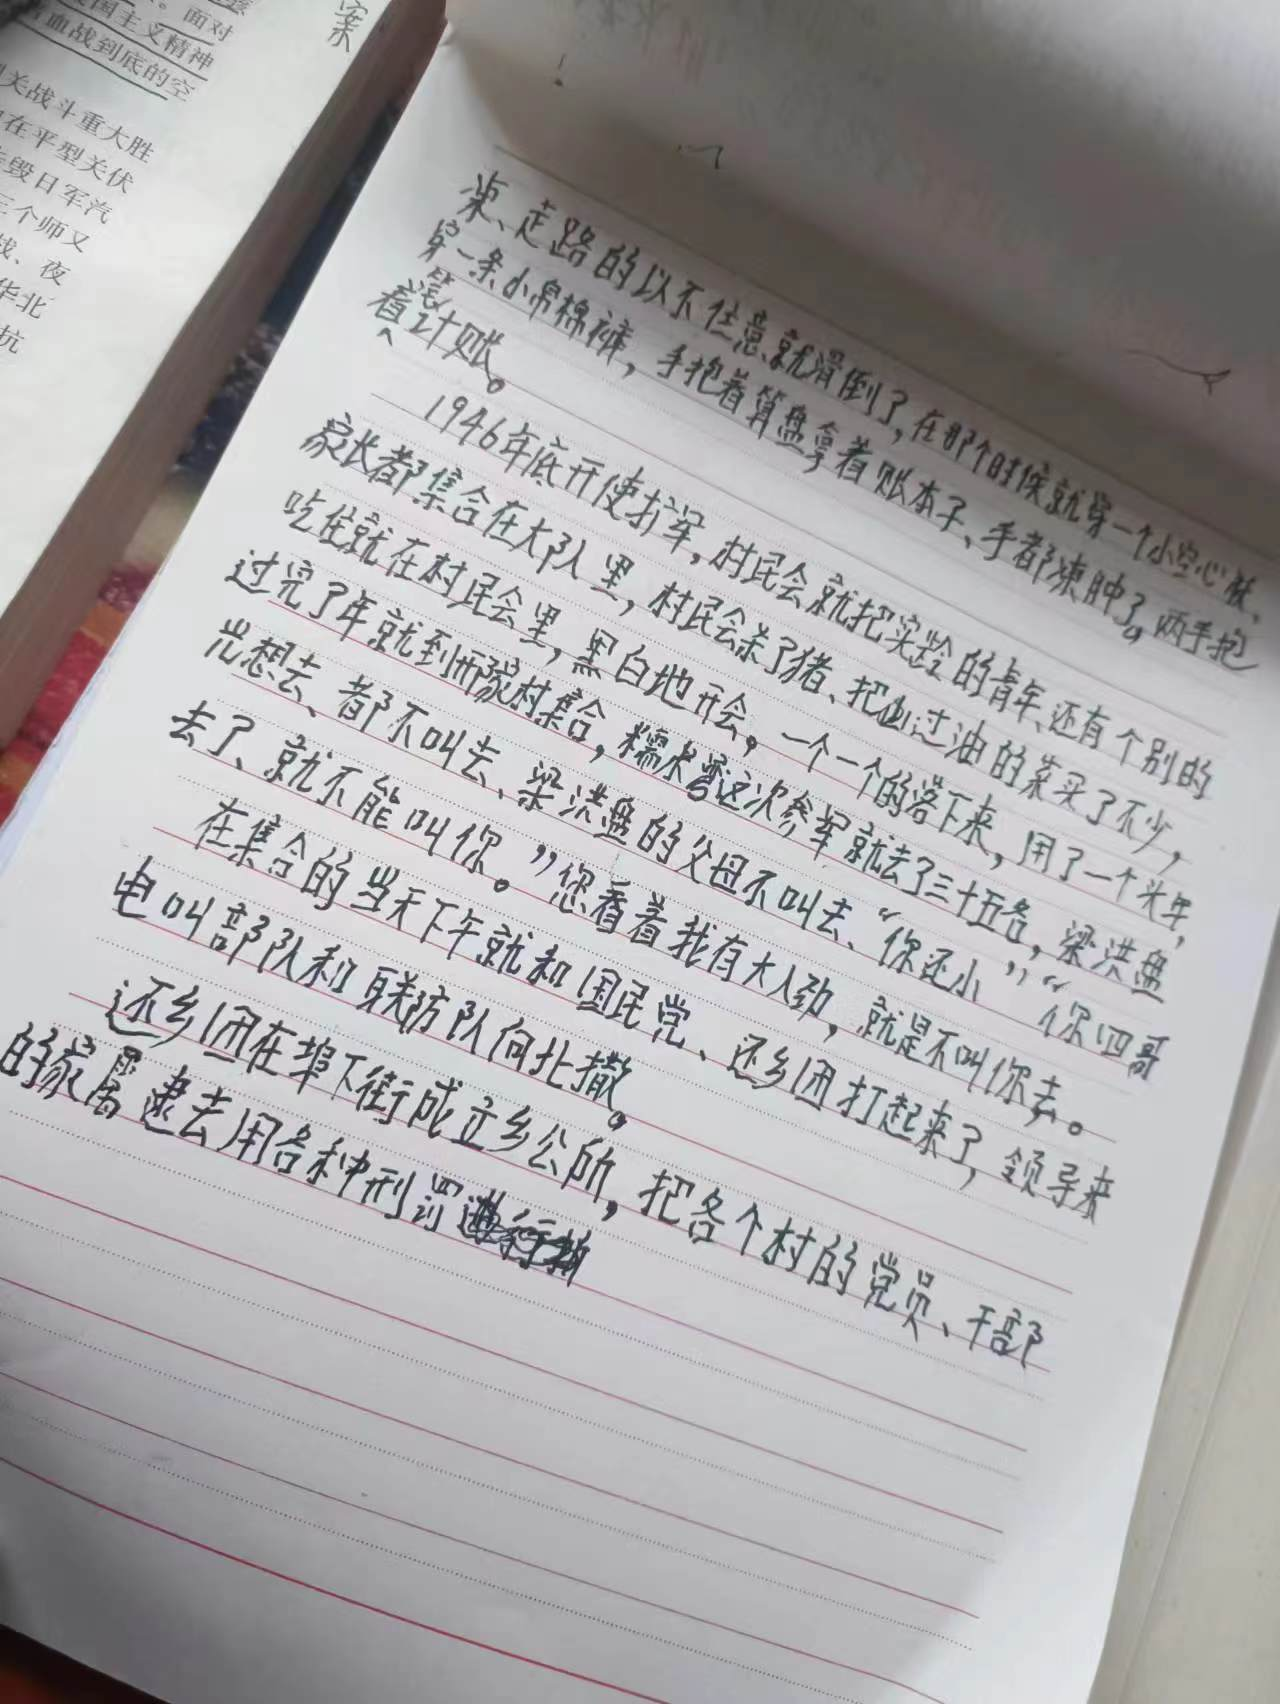 案
。面对
国主义精神
血战到底的空
关战斗重大胜
在平型关伏
毁日军汽
三个师又
战、夜
华北
抗
冻、走路的以不住意就滑倒了,在那个时候就穿一个小空心袄、
穿一条小帛棉裤,手抱着算盘拿着账本子、手都冻肿了。两手抱
着算计账。
1946年底开使扩军,村民会就把实龄的青年、还有个别的
家长都集合在大队里,村民会杀了猪、把出过油的菜买了不少,
吃住就在村民会里,黑白地开会。一个一个的落下来,用了一个头年,
过完了年就到邢家村集合,糯米弯这次参军就去了三十五名,梁洪盘
光想去、都不叫去、梁洪盘的父母不叫去、“你还小”“你四哥
去了、就不能叫你。”您看着我有大人劲,就是不叫你去。
在集合的当天下午就和国民党、还乡团打起来了,领导来
电叫部队和联防队向北撤。
还乡团在埠下街成立乡公所,把各个村的党员、干部
的家属逮去用各种刑罚